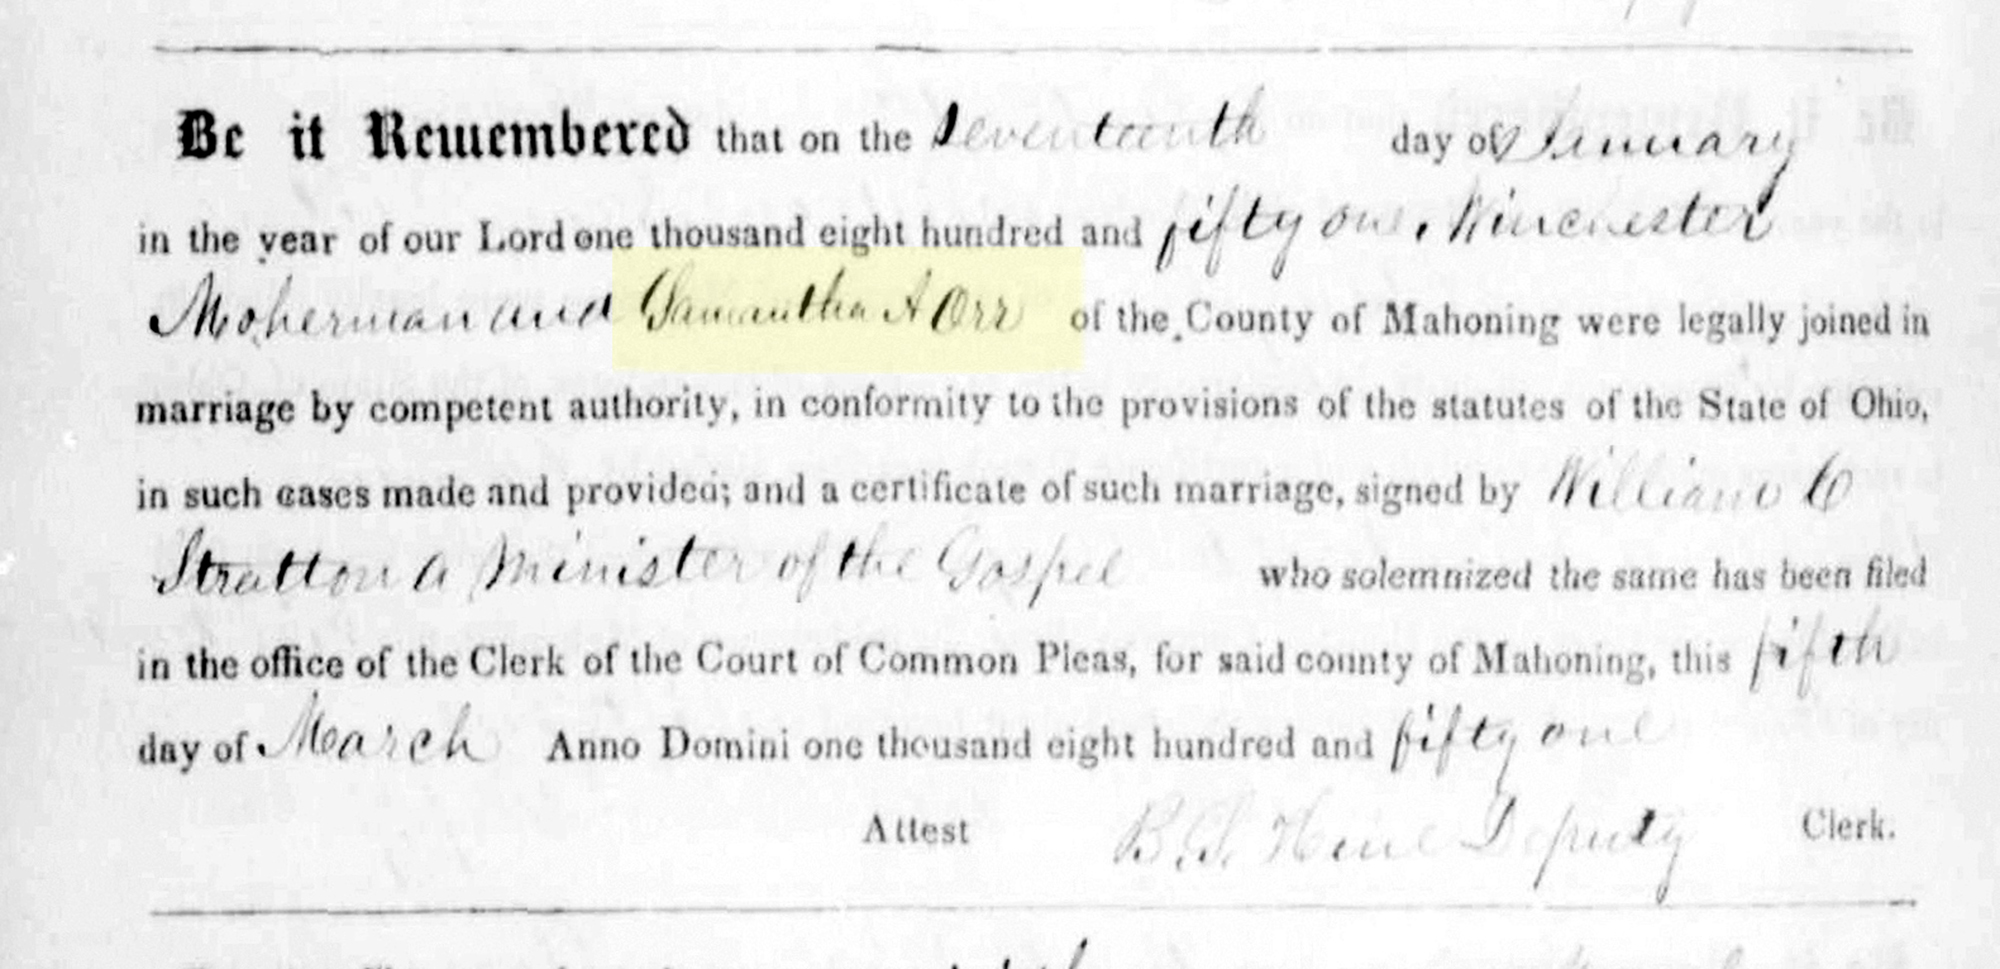 Be it Remembered that on the Seventeenth day of January
in the year of our Lord one thousand eight hundred and fifty one, Winchester
Moherman and Samantha A Orr of the County of Mahoning were legally joined in
marriage by competent authority, in conformity to the provisions of the statutes of the State of Ohio,
in such cases made and provided; and a certificate of such marriage, signed by William C
Stratton a Minister of the Gospel who solemnized the same has been filed
in the office of the Clerk of the Court of Common Pleas, for said county of Mahoning, this fifth
day of March Anno Domini one thousand eight hundred and fifty one
Attest B. Hine Deputy Clerk.